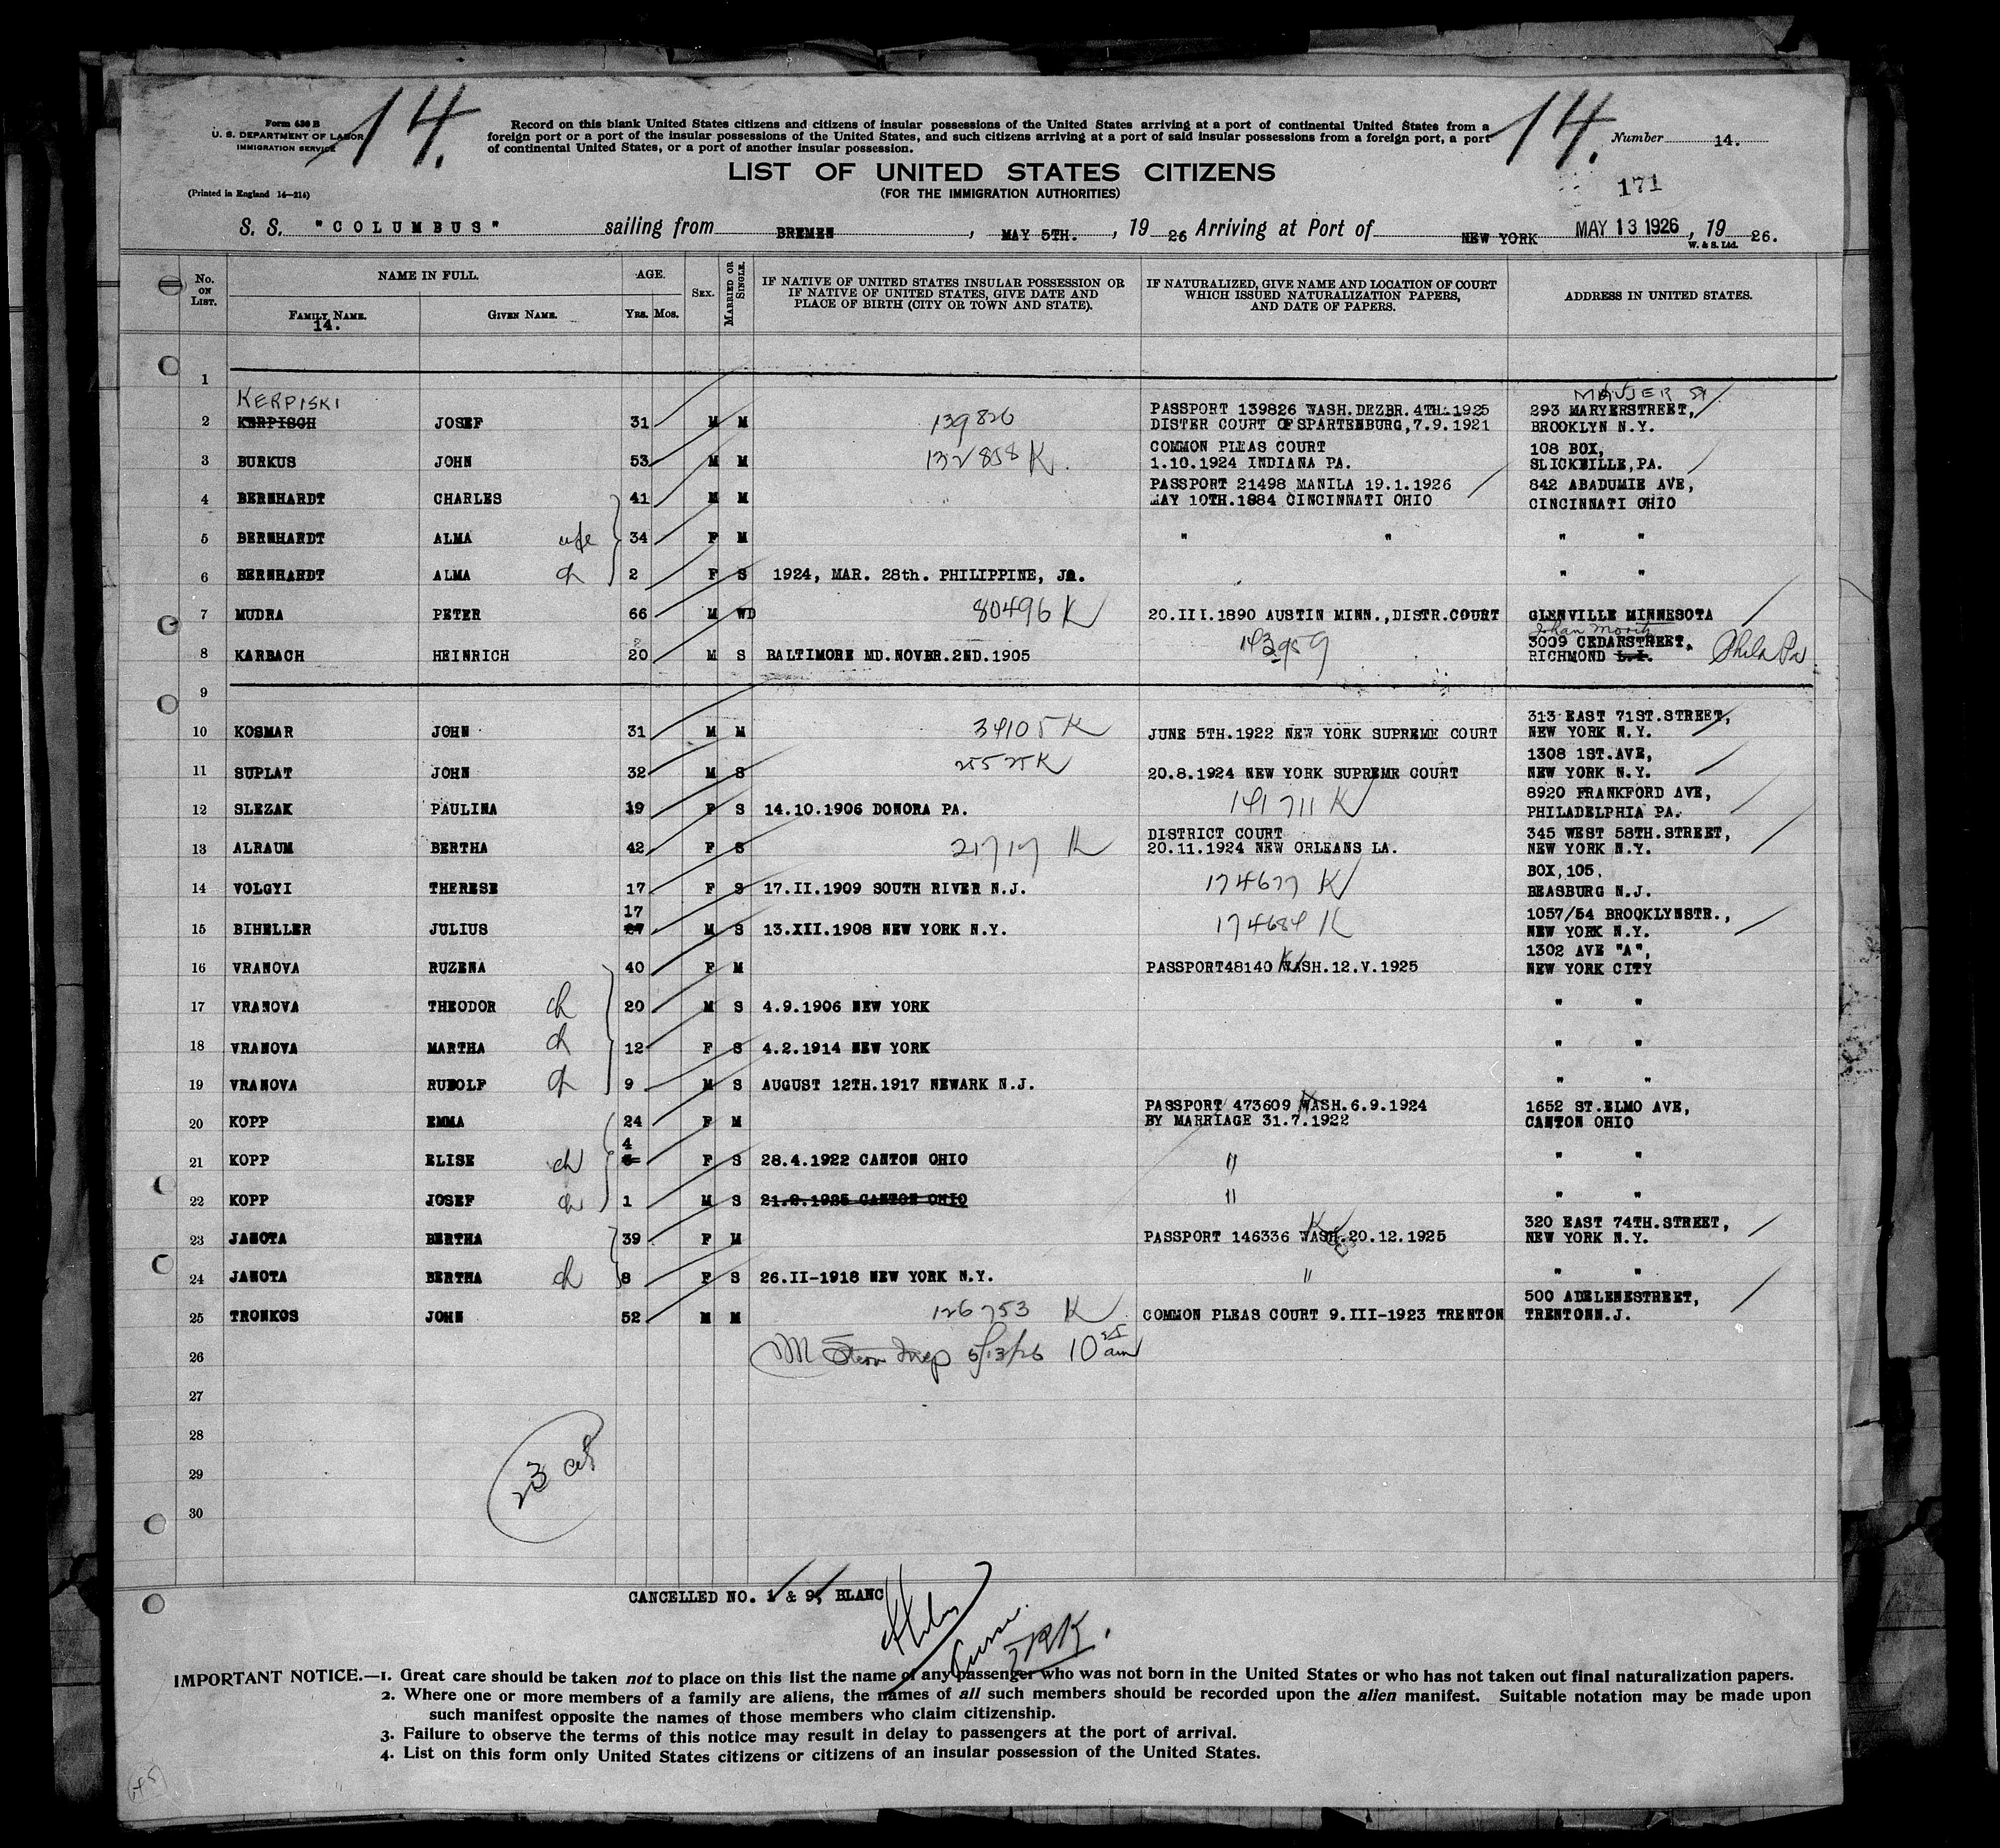 14.
14.
Form 630 B
U. S. DEPARTMENT OF LABOR
IMMIGRATION SERVICE
(Printed in England 14—214)
Record on this blank United States citizens and citizens of insular possessions of the United States arriving at a port of continental United States from a
foreign port or a port of the insular possessions of the United States, and such citizens arriving at a port of said insular possessions from a foreign port, a port
of continental United States, or a port of another insular possession.
Number 14.
LIST OF UNITED STATES CITIZENS
(FOR THE IMMIGRATION AUTHORITIES)
171
S. S. "COLUMBUS" sailing from BREMEN, MAY 5TH., 19 26 Arriving at Port of NEW YORK MAY 13 1926, 19 26.
W. & S. Ltd.
No. ON LIST. NAME IN FULL. AGE. SEX. MARRIED OR SINGLE. IF NATIVE OF UNITED STATES INSULAR POSSESSION OR IF NATIVE OF UNITED STATES, GIVE DATE AND PLACE OF BIRTH (CITY OR TOWN AND STATE). IF NATURALIZED, GIVE NAME AND LOCATION OF COURT WHICH ISSUED NATURALIZATION PAPERS, AND DATE OF PAPERS. ADDRESS IN UNITED STATES.
FAMILY NAME. GIVEN NAME. YRS. MOS.
14.
1
KERPISKI MAUJER St
PASSPORT 139826 WASH.DEZBR.4TH.1925 293 MARYERSTREET,
2 KERPISCH JOSEF 31 M M 139826 DISTER COURT OF SPARTENBURG,7.9.1921 BROOKLYN N.Y.
COMMON PLEAS COURT 108 BOX,
3 BURKUS JOHN 53 M M 132858 K. 1.10.1924 INDIANA PA. SLICKVILLE,PA.
PASSPORT 21498 MANILA 19.1.1926 842 ABADUMIE AVE,
4 BERNHARDT CHARLES 41 M M MAY 10TH.1884 CINCINNATI OHIO CINCINNATI OHIO
5 BERNHARDT ALMA wfe 34 F M " " " "
6 BERNHARDT ALMA ch 2 F S 1924, MAR. 28th. PHILIPPINE, JS. " "
7 MUDRA PETER 66 M WD 80496 K 20.III.1890 AUSTIN MINN.,DISTR.COURT GLENVILLE MINNESOTA
143959 3009 CEDARSTREET,
8 KARBACH HEINRICH 20 M S BALTIMORE MD.NOVBR.2ND.1905 RICHMOND L.I. Phila Pa
9
313 EAST 71ST.STREET,
10 KOSMAR JOHN 31 M M 34105 K JUNE 5TH.1922 NEW YORK SUPREME COURT NEW YORK N.Y.
1308 1ST.AVE,
11 SUPLAT JOHN 32 M S 2525 K 20.8.1924 NEW YORK SUPREME COURT NEW YORK N.Y.
8920 FRANKFORD AVE,
12 SLEZAK PAULINA 19 F S 14.10.1906 DONORA PA. 141711 K PHILADELPHIA PA.
DISTRICT COURT 345 WEST 58TH.STREET,
13 ALRAUM BERTHA 42 F S 21717 K 20.11.1924 NEW ORLEANS LA. NEW YORK N.Y.
BOX,105,
14 VOLGYI THERESE 17 F S 17.II.1909 SOUTH RIVER N.J. 174677 K BEASBURG N.J.
17 1057/54 BROOKLYNSTR.,
15 BIHELLER JULIUS 27 M S 13.XII.1908 NEW YORK N.Y. 174684 K NEW YORK N.Y.
1302 AVE "A",
16 VRANOVA RUZENA 40 F M PASSPORT48140 WASH.12.V.1925 NEW YORK CITY
17 VRANOVA THEODOR ch 20 M S 4.9.1906 NEW YORK " "
18 VRANOVA MARTHA ch 12 F S 4.2.1914 NEW YORK " "
19 VRANOVA RUDOLF ch 9 M S AUGUST 12TH.1917 NEWARK N.J. " "
PASSPORT 473609 WASH.6.9.1924 1652 ST.ELMO AVE,
20 KOPP EMMA 24 F M BY MARRIAGE 31.7.1922 CANTON OHIO
4
21 KOPP ELISE ch F S 28.4.1922 CANTON OHIO " " "
22 KOPP JOSEF ch 1 M S 21.2.1925 CANTON OHIO " " "
320 EAST 74TH.STREET,
23 JANOTA BERTHA 39 F M PASSPORT 146336 WASH.20.12.1925 NEW YORK N.Y.
24 JANOTA BERTHA ch 8 F S 26.II-1918 NEW YORK N.Y. " " "
500 ADELENESTREET,
25 TRONKOS JOHN 52 M M 126753 K COMMON PLEAS COURT 9.III-1923 TRENTON TRENTONN.J.
26 M Stern Insp 5/13/26 10 25 am
27
28
29
30
23 cit
CANCELLED NO. 1 & 9, BLANC
IMPORTANT NOTICE.—1. Great care should be taken not to place on this list the name of any passenger who was not born in the United States or who has not taken out final naturalization papers.
2. Where one or more members of a family are aliens, the names of all such members should be recorded upon the alien manifest. Suitable notation may be made upon
such manifest opposite the names of those members who claim citizenship.
3. Failure to observe the terms of this notice may result in delay to passengers at the port of arrival.
4. List on this form only United States citizens or citizens of an insular possession of the United States.